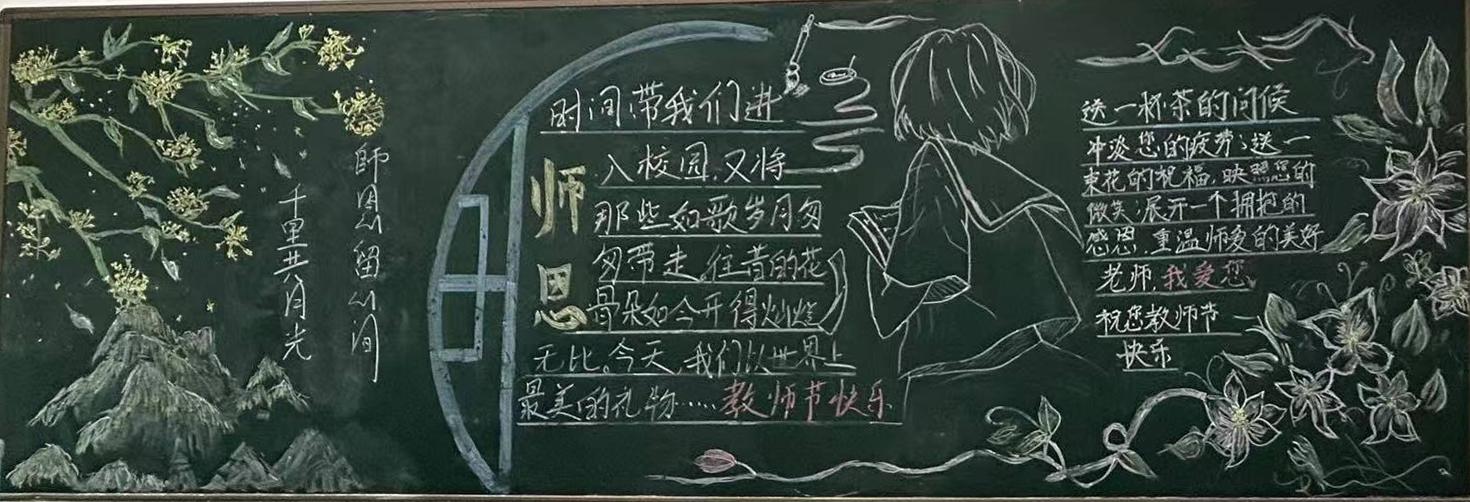 師恩留心间
千里共月光
师恩
时间带我们进
入校园,又将
那些如歌岁月匆
匆带走,往昔的花
骨朵如今开得灿烂
无比。今天,我们以世界上
最美的礼物……教师节快乐
送一杯茶的问候
冲淡您的疲劳;送一
束花的祝福,映照您的
微笑;展开一个拥抱的
感恩,重温师爱的美好
老师,我爱您
祝您教师节
快乐